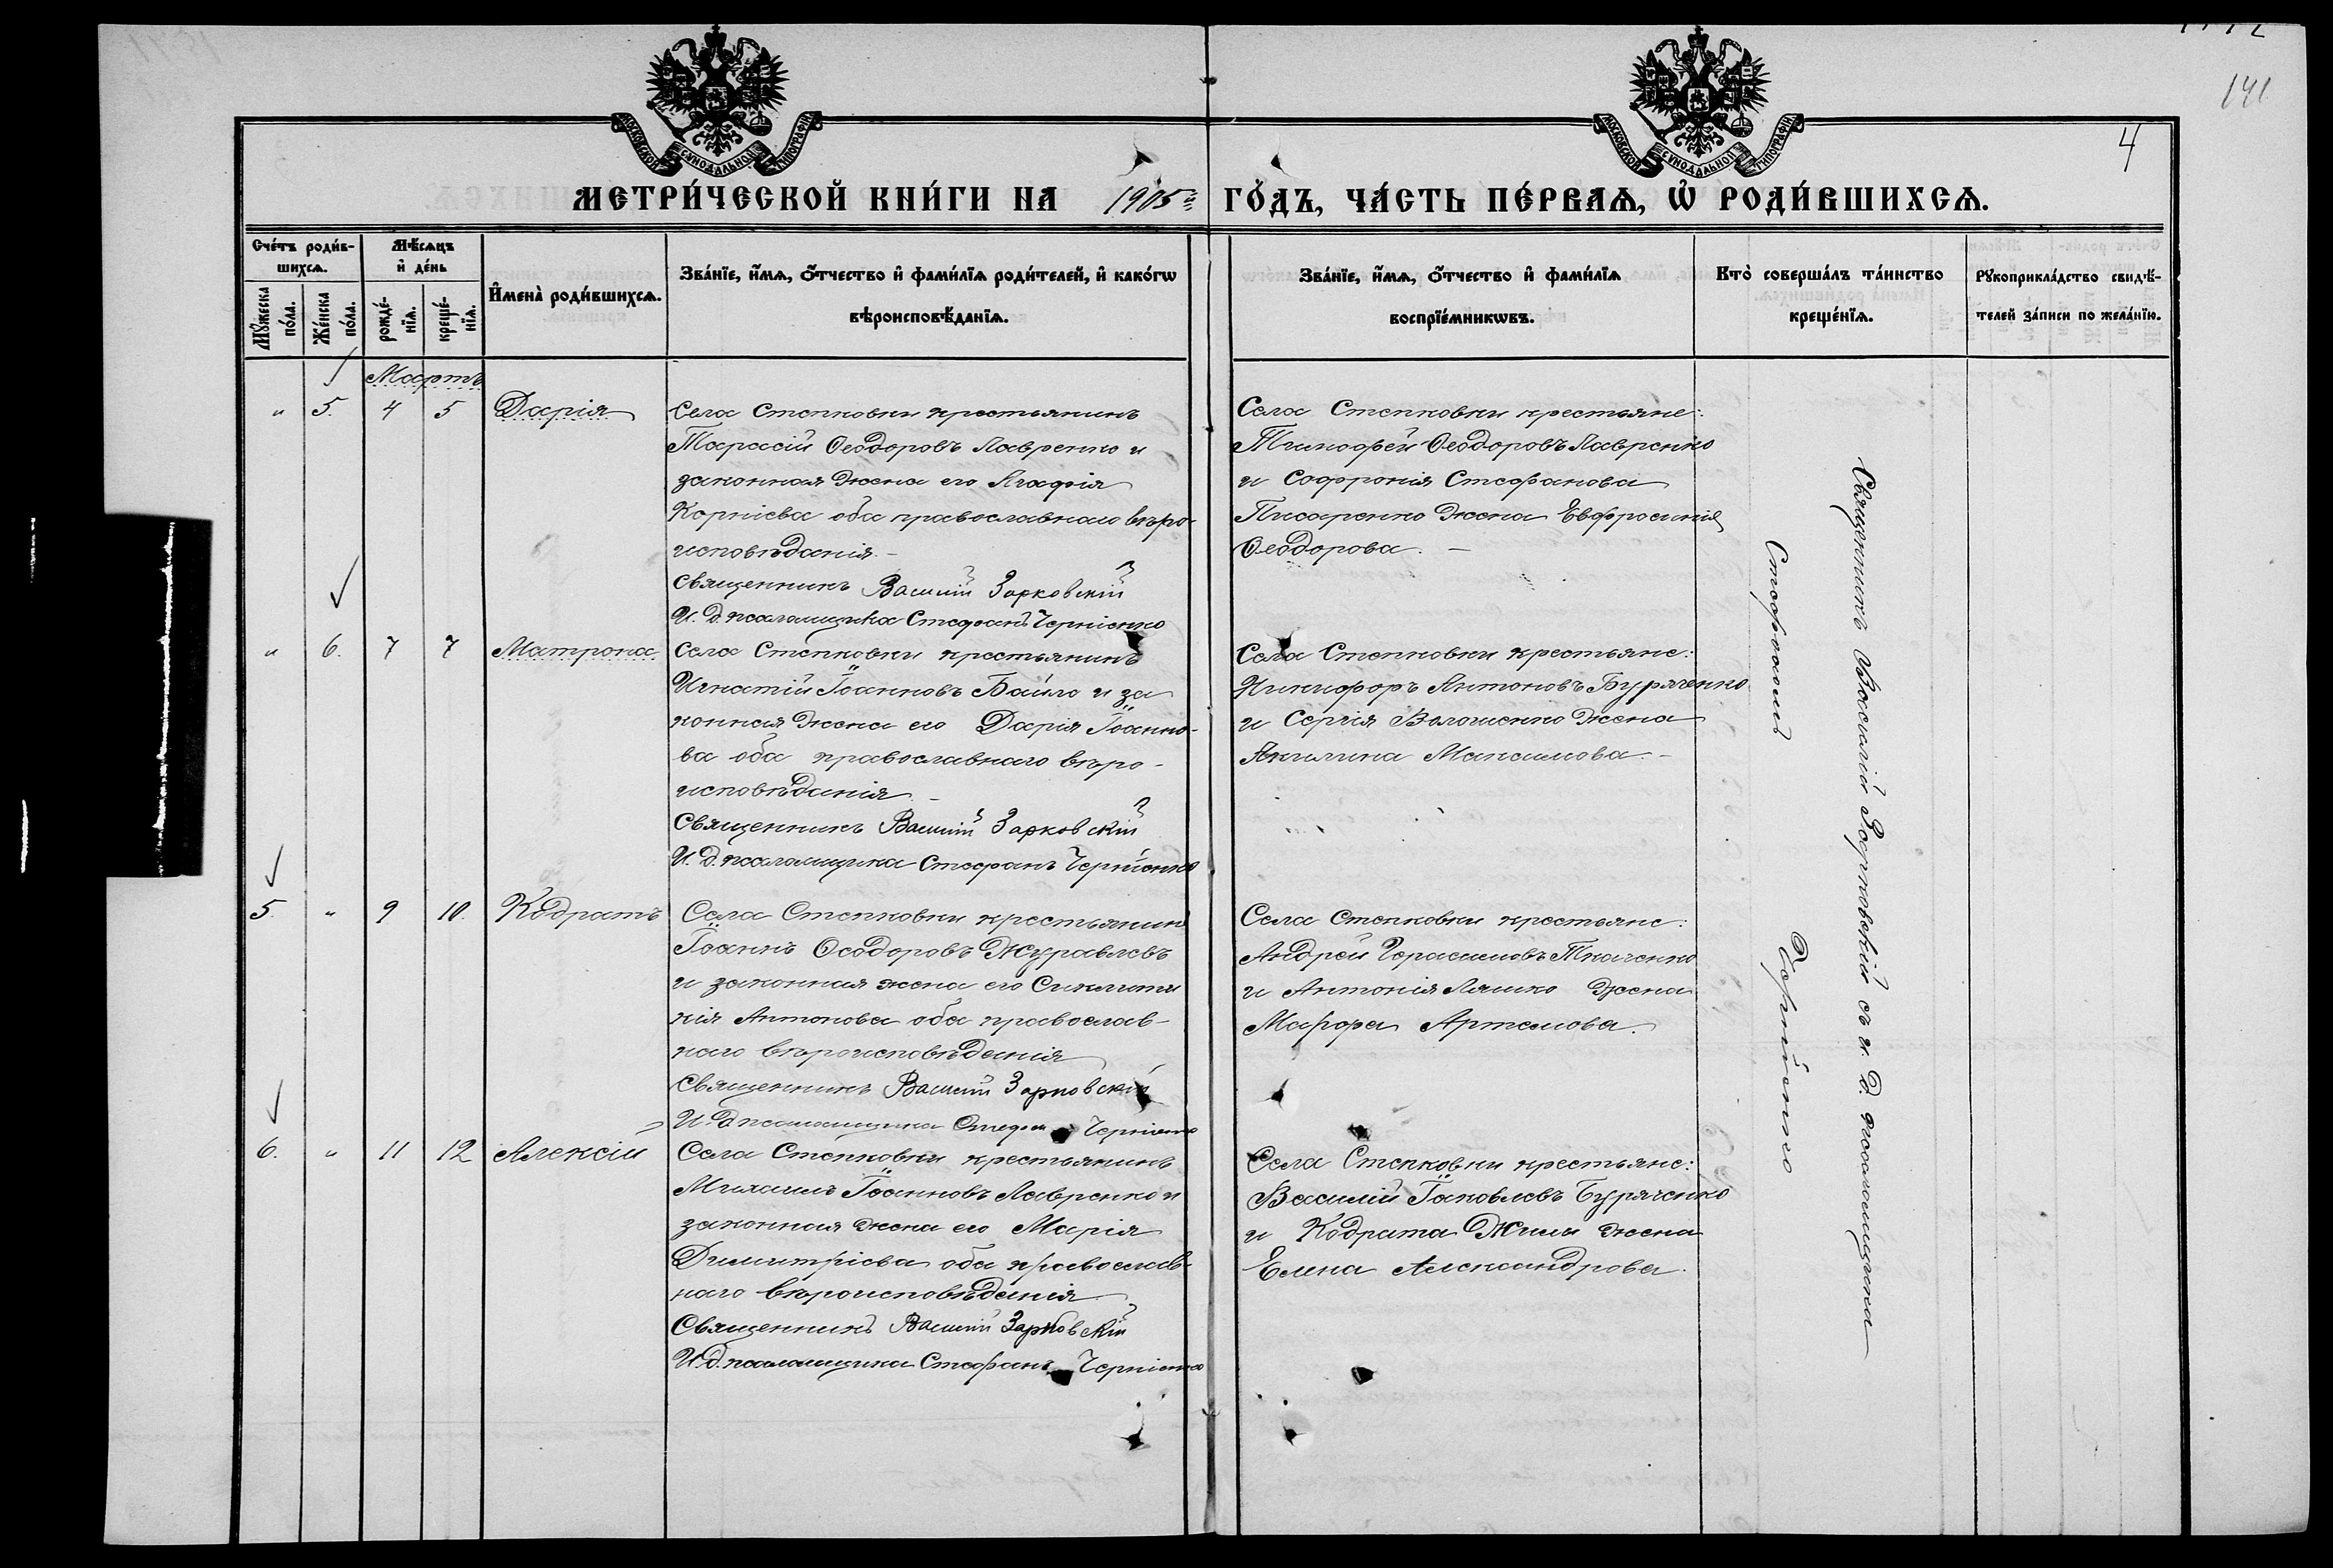 141
4
МОСКОВСКОЙ СУНОДАЛЬНОЙ ТИПОГРАФІИ
МОСКОВСКОЙ СУНОДАЛЬНОЙ ТИПОГРАФІИ
МЕТРИ́ЧЕСКОЙ КНИ́ГИ НА 1905й ГО́ДЪ, ЧА́СТЬ ПЕ́РВАѦ, Ѡ҆ РОДИ́ВШИХСѦ.
Сче́тъ роди́в-
шихсѧ.
Мꙋ́жеска по́ла.
Же́нска по́ла.
Мѣ́сѧцъ
и҆ де́нь
рожде́-
нїѧ.
креще́-
нїѧ.
И҆мена̀ роди́вшихсѧ.
Зва́нїе, и҆́мѧ, ѻ҆́тчество и҆ фами́лїѧ роди́телей, и҆ како́гѡ
вѣроисповѣ́данїѧ.
Зва́нїе, и҆́мѧ, ѻ҆́тчество и҆ фами́лїѧ
воспрїе́мникѡвъ.
Кто̀ соверша́лъ та́инство
креще́нїѧ.
Рꙋкоприкла́дство свидѣ́-
телей за́писи по жела́нїю.
Мартъ
" 5. 4 5 Дарія
Села Степковки крестьянинъ
Тарасій Ѳеодоровъ Лавренко и
законная жена его Агафія
Корніева оба православнаго вѣро-
исповѣданія. –
Священникъ Василій Зарковскій
И. д. псаломщика Стефанъ Чернієнко
Села Степковки крестьяне:
Тимофей Ѳеодоровъ Лавренко
и Софронія Стефанова
Писаренко жена Евфросинія
Ѳеодорова. –
" 6. 7 7 Матрона
Села Степковки крестьянинъ
Игнатій Іоанновъ Байло и за
конная жена его Дарія Іоанно-
ва оба православнаго вѣро-
исповѣданія –
Священникъ Василій Зарковскій
И. д. псаломщика Стефанъ Чернієнко
Села Степковки крестьяне:
Никифоръ Антоновъ Буряченко
и Сергія Волошенко жена
Акилина Максимова. –
5. " 9 10. Кодратъ
Села Степковки крестьянинъ
Іоаннъ Ѳеодоровъ Журавлевъ
и законная жена его
нія Антонова оба православ-
наго вѣроисповѣданія
Священникъ Василій Зарковскій
И. д. псаломщика Стефанъ Чернієнко
Села Степковки крестьяне:
Андрей Герасимовъ Ткаченко
и Антонія Ляшко жена
Марфа Артемова.
6. " 11 12 Алексій
Села Степковки крестьянинъ
Михаилъ Іоанновъ Лавренко и
законная жена его Марія
Димитріева оба православ-
наго вѣроисповѣданія
Священникъ Василій Зарковскій
И. д. псаломщика Стефанъ Чернієнко
Села Степковки крестьяне:
Василій Іаковлевъ Буряченко
и Кодрата Жилы жена
Елена Александрова.
Священникъ Василій Зарковскій съ и. д. псаломщика
Стефаномъ Чернієнко